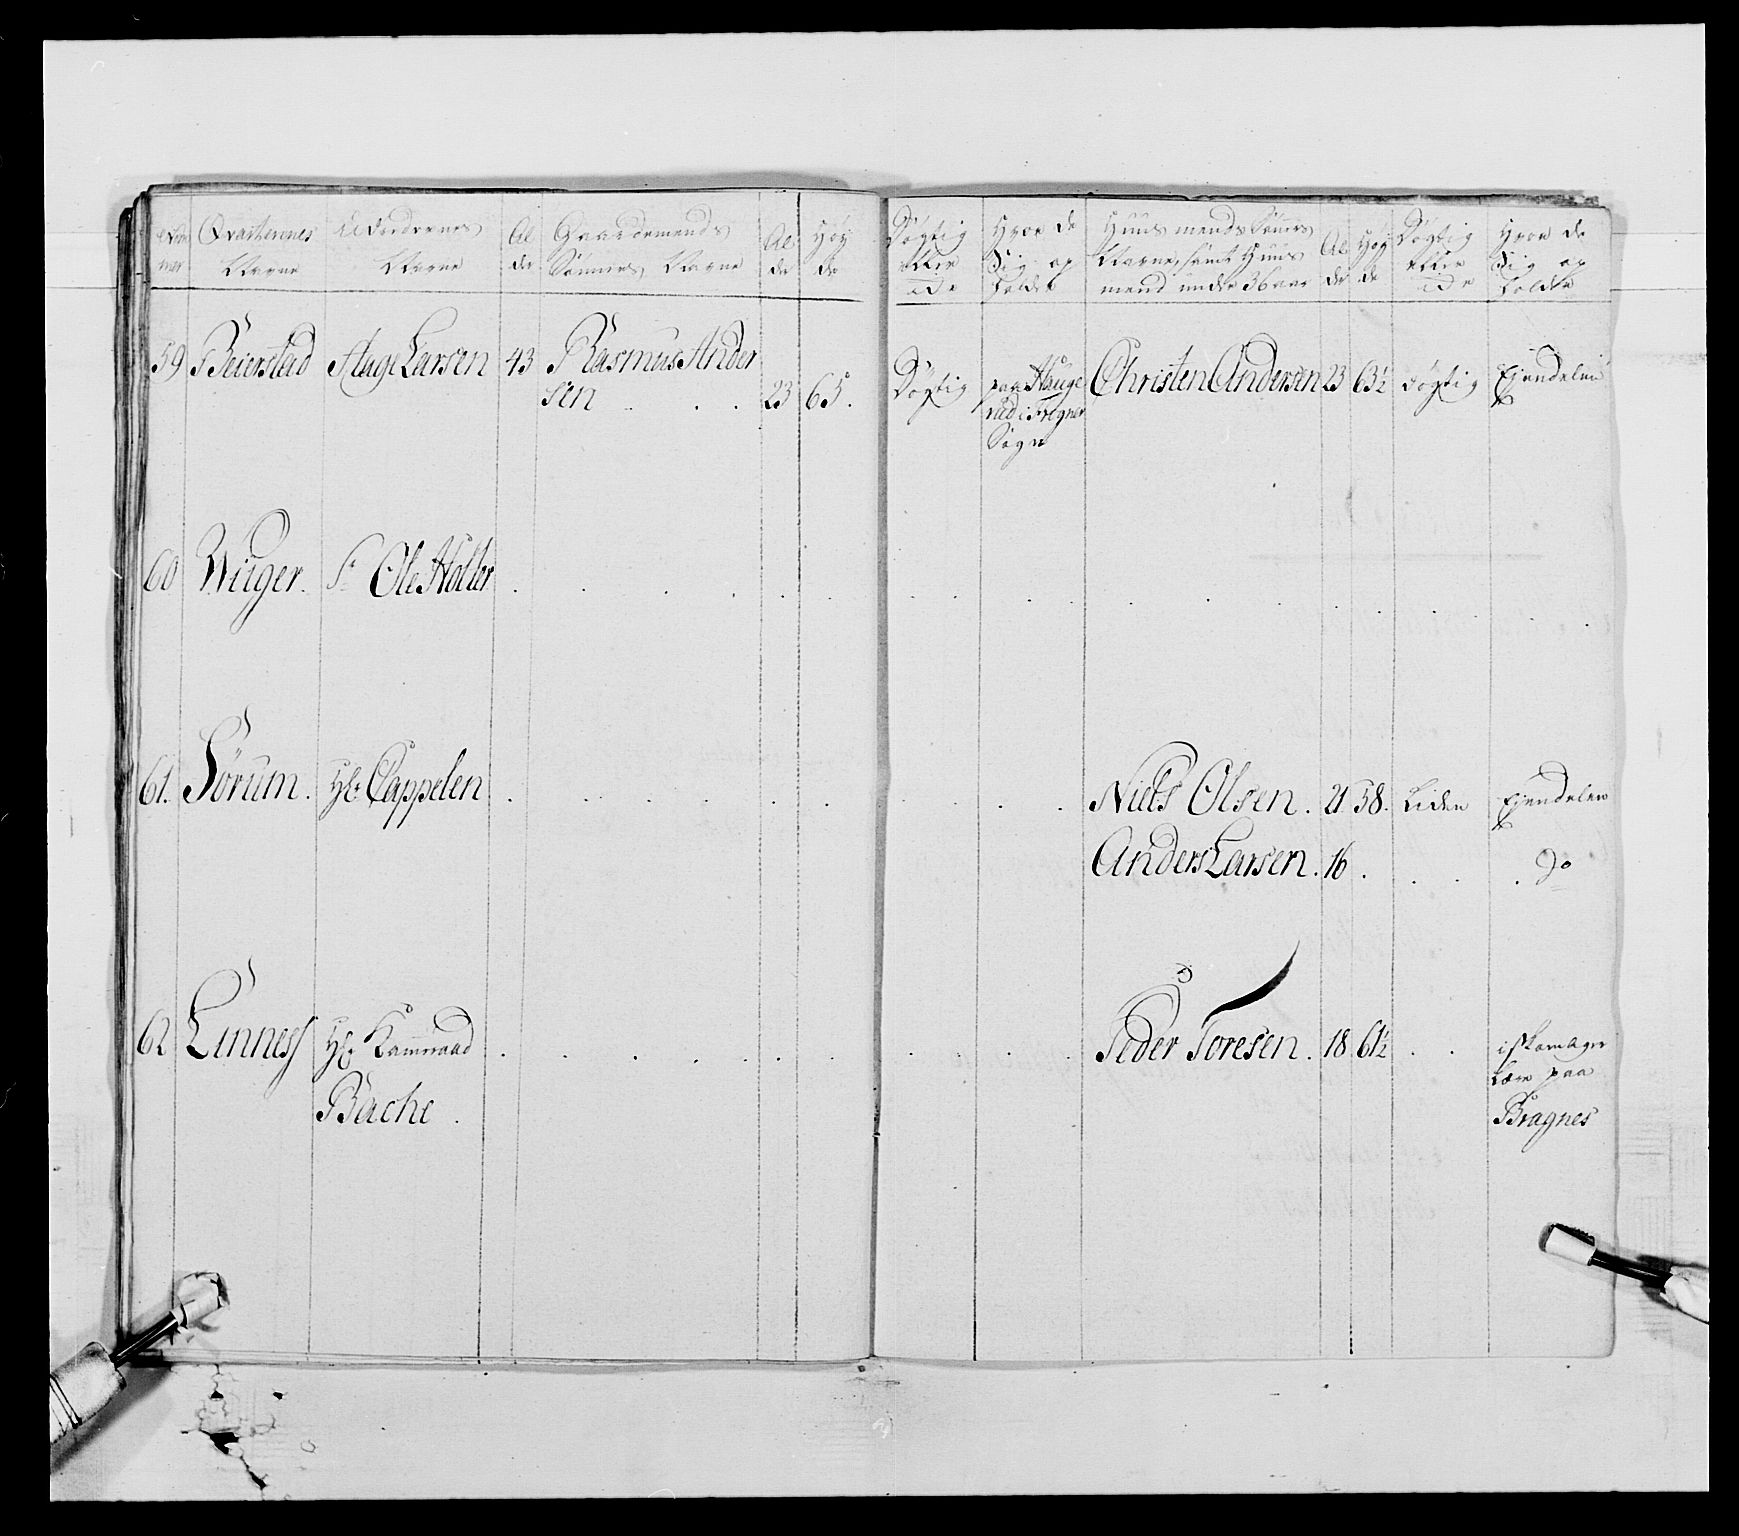 Num
mer
Qvarterernes
Navne
Opsidderenes
Navne
Al
der
Gaardemends
Sønners Navne
Al
der
Høy
de
Døgtig
eller
ide
Hvor de
Sig op
holder
Huusmends Sønners
Navne, samt Huus
mend under 36 aar
Al
der
Høy
de
Døgtig
eller
ide
Hvor de
Sig op
holder
59 Beierstad Aage Larsen 43 Rasmus Ander
sen . . . 23 65.
Døgtig paa Hauge
rud i Frogner
Sogn
Christen Andersen 23 63½ døgtig Ejendelen
60 Wiiger. Sr Ole Holter
61. Sørum. Hr Cappelen
Niels Olsen. 21 58. Liden Ejendelen
Anders Larsen. 16 . . . . do
62 Linness Hr Kamraad
Bache.
Peder Toresen. 18 61½ . . i skomager
Lære paa
Bragnes